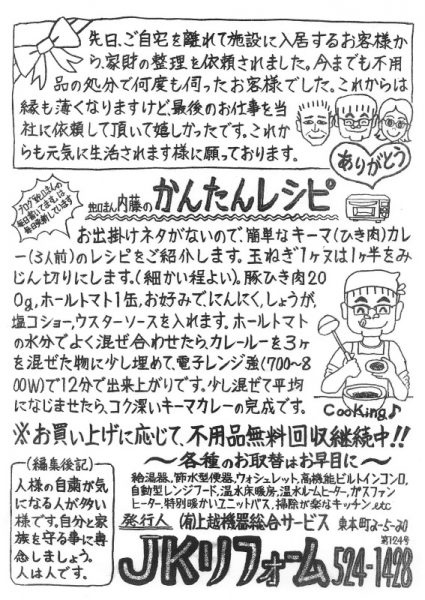 先日、ご自宅を離れて施設に入居するお客様か
ら、家財の整理を依頼されました。今までも不用
品の処分で何度も伺ったお客様でした。これからは
縁も薄くなりますけど、最後のお仕事を当
社に依頼して頂いて嬉しかったです。これか
らも元気に生活されます様に願っております。
ありがとう
内藤の かんたんレシピ
お出掛けネタがないので、簡単なキーマ(ひき肉)カレ
ー(3人前)のレシピをご紹介します。玉ねぎ1ケ又は1ケ半をみ
じん切りにします。(細かい程よい)。豚ひき肉20
0g、ホールトマト1缶、お好みでにんにく、しょうが、
塩コショー、ウスターソースを入れます。ホールトマト
の水分でよく混ぜ合わせたら、カレールーを3ヶ
を混ぜた物に少し埋めて、電子レンジ強(700〜8
00W)で12分で出来上がりです。少し混ぜて平均
になじませたら、コク深いキーマカレーの完成です。
Cooking♪
※お買い上げに応じて、不用品無料回収継続中!!
〜各種のお取替はお早目に〜
給湯器、節水型便器、ウォシュレット、高機能ビルトインコンロ、
自動型レンジフード、温水床暖房、温水ルームヒーター、ガスファン
ヒーター、特別暖かいユニットバス、掃除が楽なキッチン、etc
(編集後記)
人様の自粛が気
になる人が多い
様です。自分と家
族を守る事に専
念しましょう。
人は人です。
発行人 (有)上越機器総合サービス 東本町2-5-20
第124号
JKリフォーム 524-1428